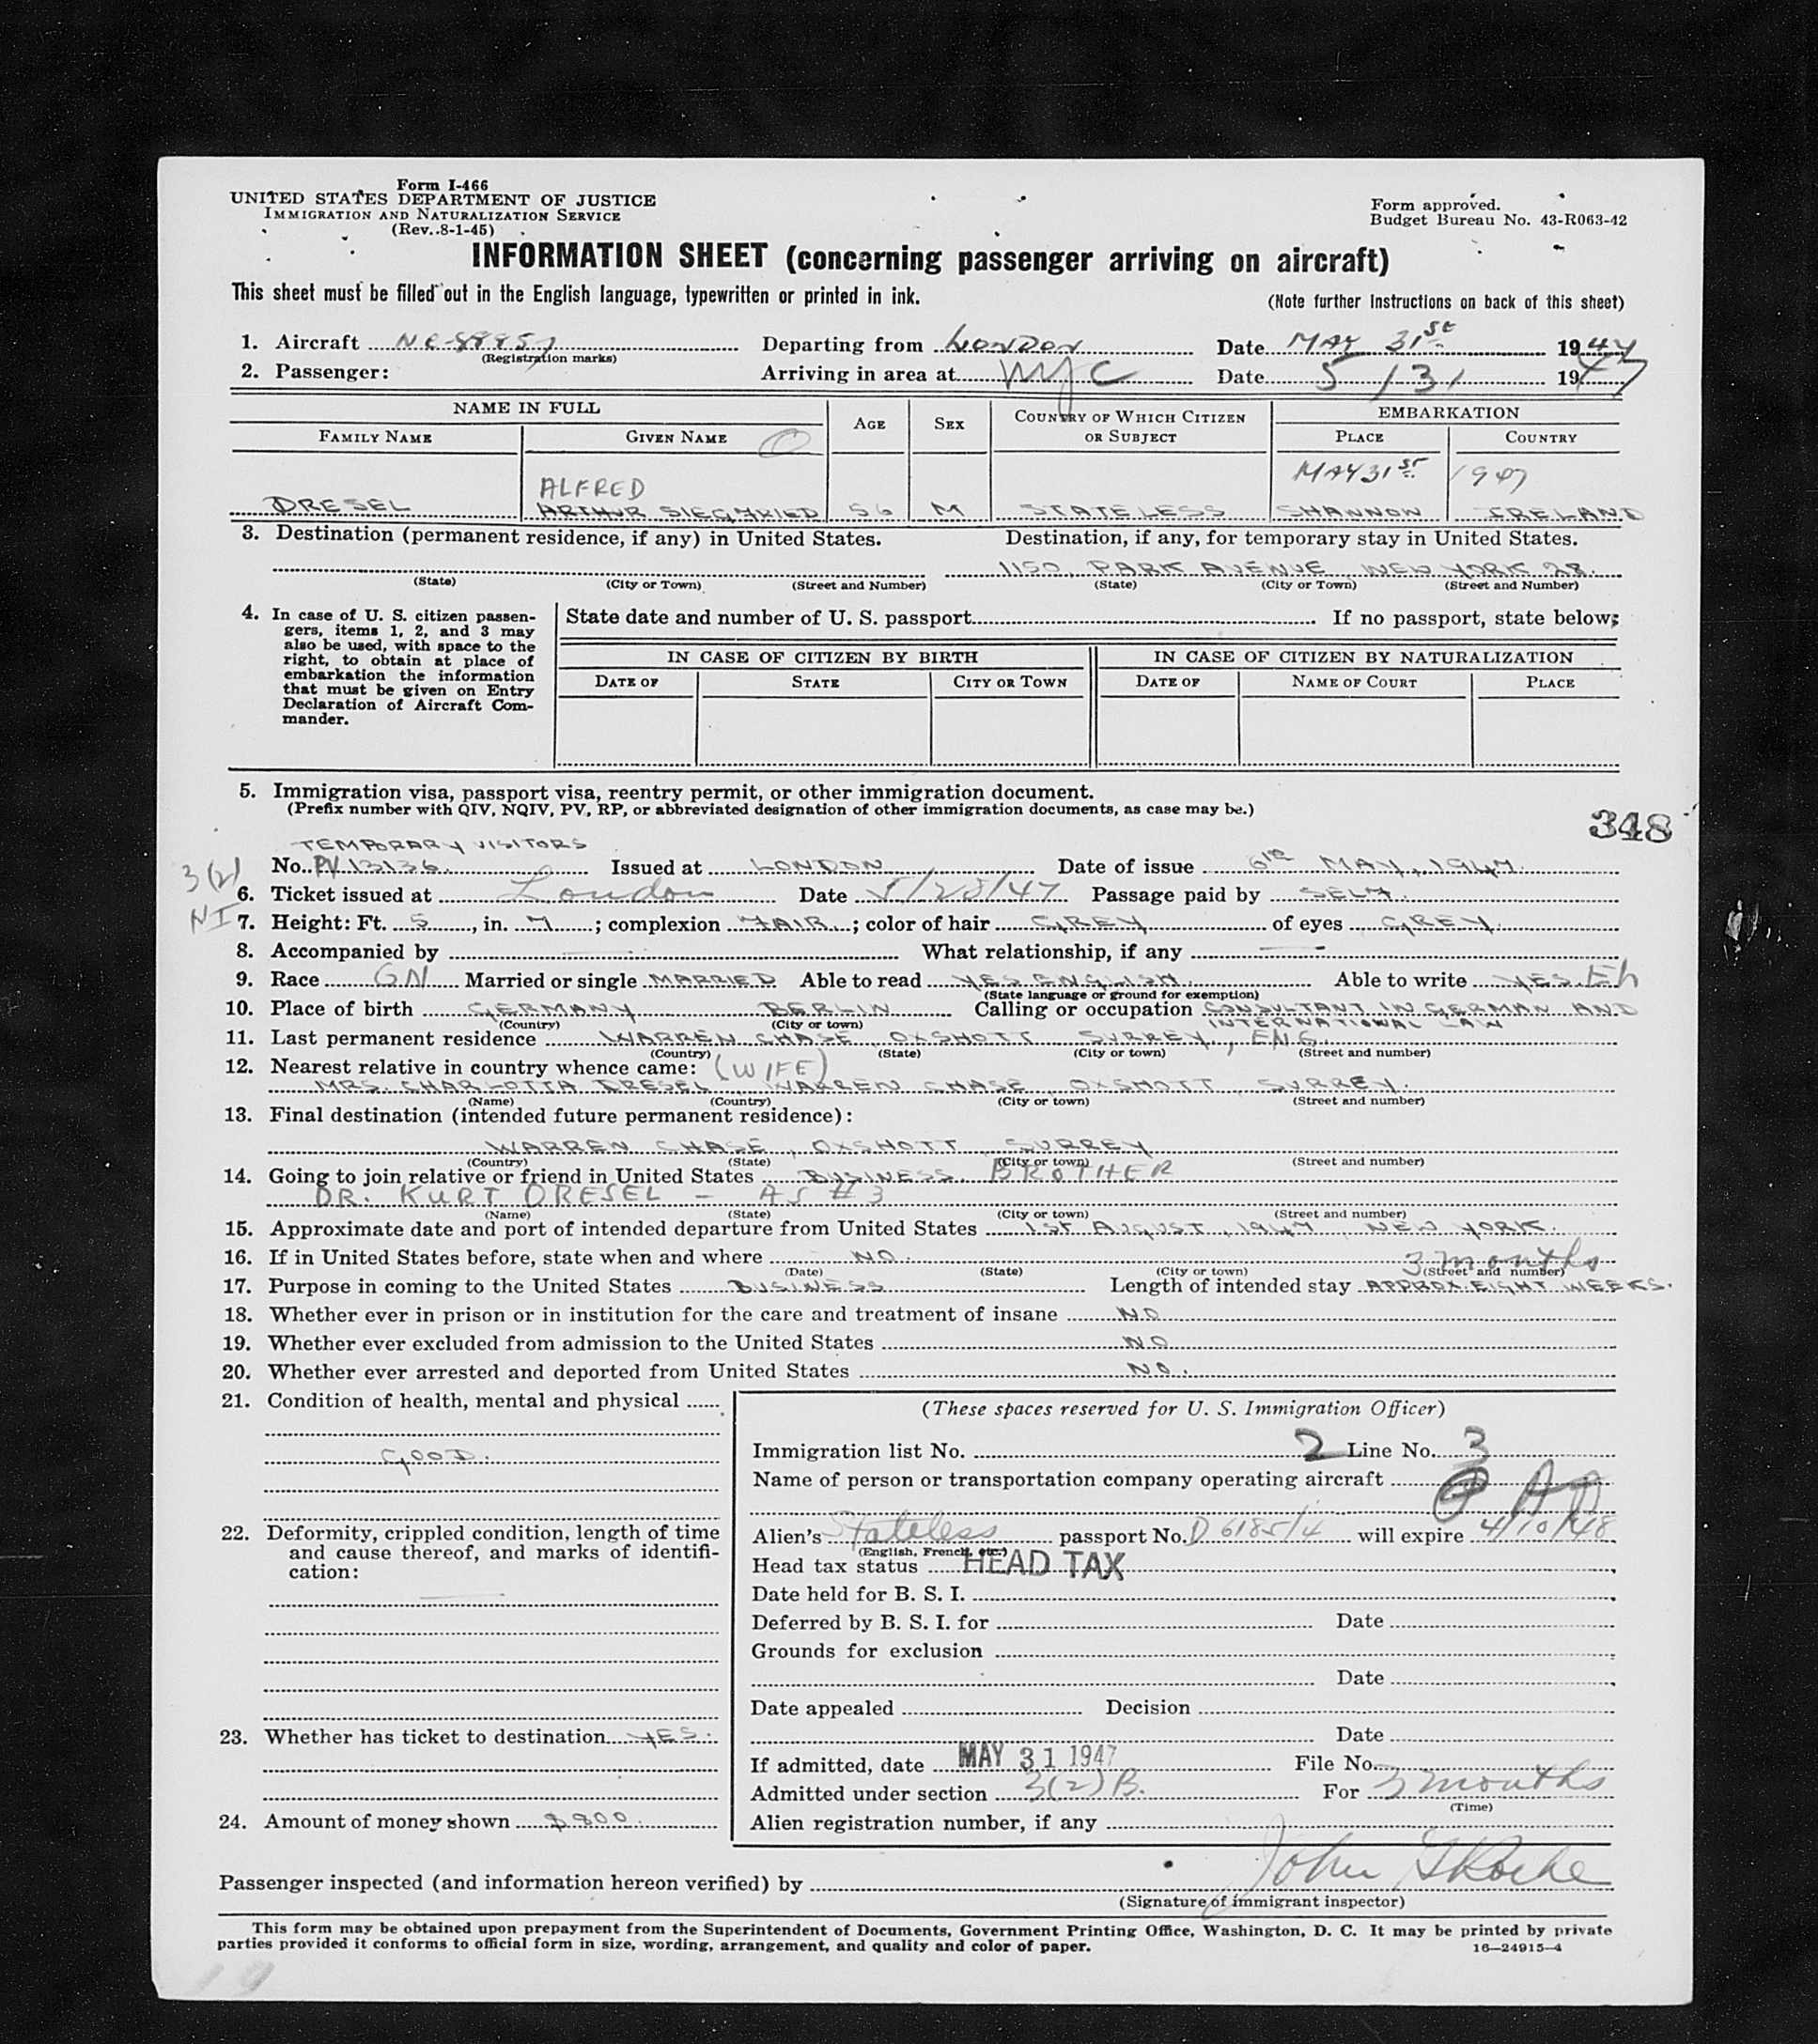 Form I-466
UNITED STATES DEPARTMENT OF JUSTICE
IMMIGRATION AND NATURALIZATION SERVICE
(Rev. 8-1-45)
Form approved.
Budget Bureau No. 43-R063-42
INFORMATION SHEET (concerning passenger arriving on aircraft)
This sheet must be filled out in the English language, typewritten or printed in ink.
(Note further Instructions on back of this sheet)
1. Aircraft NC-88857 Departing from LONDON Date MAY 31st 1947
(Registration marks)
2. Passenger: Arriving in area at NYC Date 5/31 1947
NAME IN FULL AGE SEX COUNTRY OF WHICH CITIZEN OR SUBJECT EMBARKATION
FAMILY NAME GIVEN NAME PLACE COUNTRY
MAY 31ST 1947
ALFRED
DRESEL ARTHUR SIEGFRIED 56 M STATELESS SHANNON IRELAND
3. Destination (permanent residence, if any) in United States. Destination, if any, for temporary stay in United States.
1150, PARK AVENUE, NEW YORK 28.
(State) (City or Town) (Street and Number) (State) (City or Town) (Street and Number)
4. In case of U. S. citizen passengers, items 1, 2, and 3 may also be used, with space to the right, to obtain at place of embarkation the information that must be given on Entry Declaration of Aircraft Commander.
State date and number of U. S. passport If no passport, state below:
IN CASE OF CITIZEN BY BIRTH IN CASE OF CITIZEN BY NATURALIZATION
DATE OF STATE CITY OR TOWN DATE OF NAME OF COURT PLACE
5. Immigration visa, passport visa, reentry permit, or other immigration document.
(Prefix number with QIV, NQIV, PV, RP, or abbreviated designation of other immigration documents, as case may be.)
348
TEMPORARY VISITORS
3(2) No. PV 13136. Issued at LONDON Date of issue 6TH MAY, 1947.
6. Ticket issued at London Date 5/28/47 Passage paid by SELF.
NI 7. Height: Ft. 5, in. 7; complexion FAIR; color of hair GREY of eyes GREY.
8. Accompanied by — What relationship, if any —
9. Race GN Married or single MARRIED Able to read YES ENGLISH Able to write YES. Eh
(State language or ground for exemption)
10. Place of birth GERMANY BERLIN Calling or occupation CONSULTANT IN GERMAN AND
(Country) (City or town) INTERNATIONAL LAW
11. Last permanent residence WARREN CHASE, OXSHOTT SURREY., ENG.
(Country) (State) (City or town) (Street and number)
12. Nearest relative in country whence came: (WIFE)
MRS. CHARLOTTA DRESEL WARREN CHASE OXSHOTT SURREY.
(Name) (Country) (City or town) (Street and number)
13. Final destination (intended future permanent residence):
WARREN CHASE, OXSHOTT SURREY
(Country) (State) (City or town) (Street and number)
14. Going to join relative or friend in United States BUSINESS. BROTHER
DR. KURT DRESEL - AS #3
(Name) (State) (City or town) (Street and number)
15. Approximate date and port of intended departure from United States 1ST AUGUST, 1947 NEW YORK.
16. If in United States before, state when and where NO.
(Date) (State) (City or town) (Street and number)
3 months
17. Purpose in coming to the United States BUSINESS Length of intended stay APPROX. EIGHT WEEKS.
18. Whether ever in prison or in institution for the care and treatment of insane NO
19. Whether ever excluded from admission to the United States NO
20. Whether ever arrested and deported from United States NO.
21. Condition of health, mental and physical
GOOD.
22. Deformity, crippled condition, length of time and cause thereof, and marks of identification:
—
23. Whether has ticket to destination YES.
24. Amount of money shown $800.
(These spaces reserved for U. S. Immigration Officer)
Immigration list No. 2 Line No. 3
Name of person or transportation company operating aircraft
Alien's Stateless passport No. D 6185/4 will expire 4/10/48
(English, French, etc.)
Head tax status HEAD TAX
Date held for B. S. I.
Deferred by B. S. I. for Date
Grounds for exclusion
Date
Date appealed Decision
Date
If admitted, date MAY 31 1947 File No.
Admitted under section 3(2)B. For 3 months
(Time)
Alien registration number, if any
Passenger inspected (and information hereon verified) by John
(Signature of immigrant inspector)
This form may be obtained upon prepayment from the Superintendent of Documents, Government Printing Office, Washington, D. C. It may be printed by private
parties provided it conforms to official form in size, wording, arrangement, and quality and color of paper.
16—24915-4
19